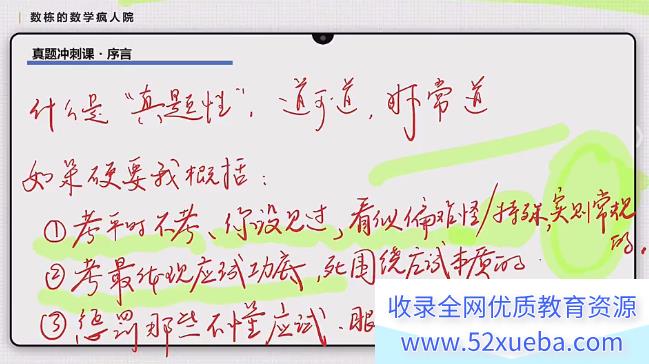 数栋的数学疯人院
真题冲刺课·序言
什么是“真题性”，道可道，非常道
如果硬要我概括：
①考平时不考、你没见过，看似偏难怪/特殊，实则常规的。
②考最体现应试功底，死围绕应试本质的
③惩罚那些不懂应试、眼
收录全网优质教育资源
www.52xueba.com